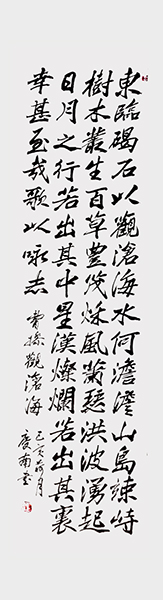 東臨碣石以觀滄海水何澹澹山島竦峙
樹木叢生百草豐茂秋風蕭瑟洪波湧起
日月之行若出其中星漢燦爛若出其裏
幸甚至哉歌以咏志 曹操觀滄海
己亥荷月